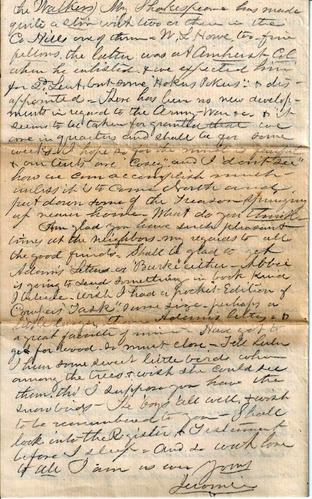 the Walkers) My Shakespeare has made
quite a stir
Co Hills one of them - W. L. Howe, too - fine
fellows, the latter was at Amherst Col
when he enlisted & we expected him
for 2 Lieut, but some "Hokus Pokus" & dis-
appointed - There has been no new develop-
ments in regard to the Army - it
seems to be taken for granted that we
are in quarters and shall be for some
weeks I hope so for the
& our tents are "Cosey" and I don't see
how we can accomplish much
unless it is to come North and
put down some of the treason springing
up nearer home - What do you think
I am glad you have such pleasant
times at the neighbors. my regards to all
the good friends. Shall be glad to get
Adams letters or Burke either. Abbie
is going to send something in book kind
I believe. Wish I had a Pocket Edition of
Cowpers Task some size perhaps a
a
great favorite of mine - Have got to
go for wood so must close - Tell
I hear some sweet little birds
among the trees & wish she could see
them, tho' I suppose you have the
snowbirds - The boys all well & wish
to be remembered to you - Shall
look into the Register & Testament
before I sleep - And so with love
to all I am as ever Yours
Jerome